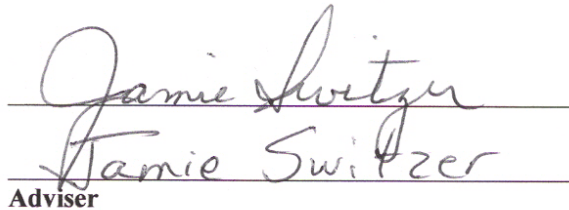 Jamie Switzer
Jamie Switzer
Adviser